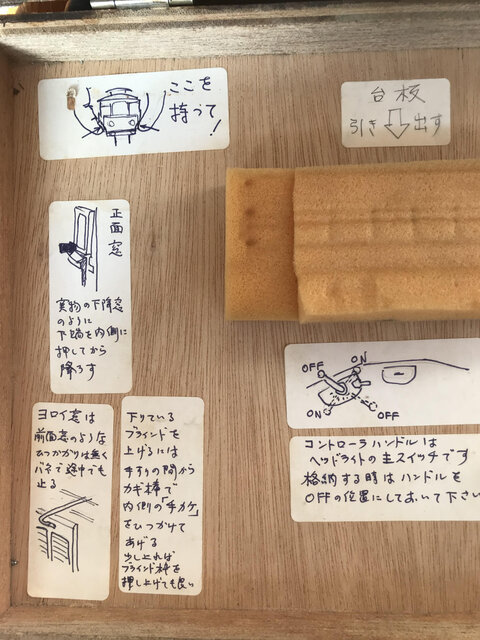 ここを
持って!
台板
引き出す
正面窓
実物の下降窓
のように
下端を内側に
押してから
降ろす
OFF
ON
ON
OFF
コントローラハンドルは
ヘッドライトの主スイッチです
格納する時はハンドルを
OFFの位置にしておいて下さい
ヨロイ窓は
前面窓のような
ひっかかりは無く
バネで途中でも
止る
下りている
ブラインドを
上げるには
手すりの間から
カギ棒で
内側の「手カケ」
をひっかけて
あげる
少し上れば
ブラインド枠を
押し上げても良い